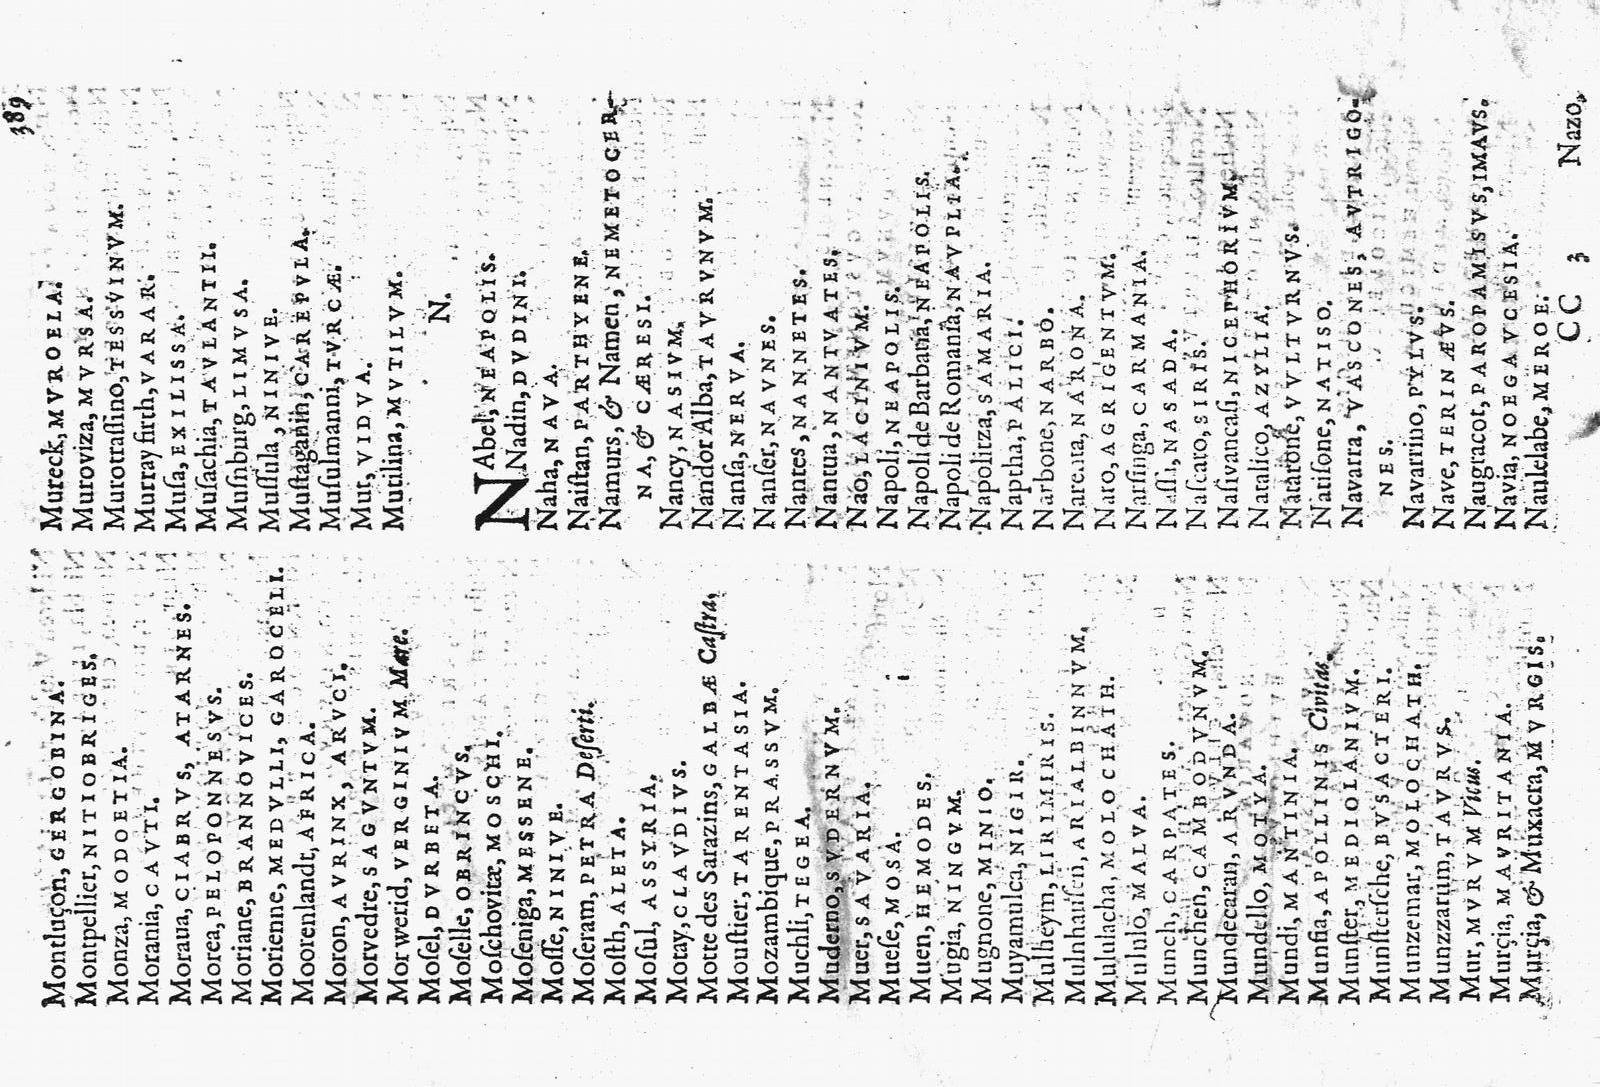 389
Montluçon, GERGOBINA.
Montpellier, NITIOBRIGES.
Monza, MODOETIA.
Morania, CAVTI.
Moraua, CIABRVS, ATARNES.
Morea, PELOPONNESVS.
Moriane, BRANNOVICES.
Morienne, MEDVLLI, GAROCELI.
Moorenlandt, AFRICA.
Moron, AVRINX, ARVCI.
Morvedre, SAGVNTVM.
Morwerid, VERGINIVM Mare.
Moſel, DVRBETA.
Moſelle, OBRINCVS.
Moſchovitæ, MOSCHI.
Moſeniga, MESSENE.
Moſſe, NINIVE.
Moſeram, PETRA Deſerti.
Moſth, ALETA.
Moſul, ASSYRIA.
Motay, CLAVDIVS.
Motte des Sarazins, GALBÆ Caſtra,
Mouſtier, TARENTASIA.
Mozambique, PRASSVM.
Muchli, TEGEA.
Muderno, SVDERNVM.
Muer, SAVARIA.
Mueſe, MOSA.
Muen, HEMODES.
Mugia, NINGVM.
Mugnone, MINIO.
Muyamulca, NIGIR.
Mulheym, LIRIMIRIS.
Mulnhauſen, ARIALBINNVM.
Mululacha, MOLOCHATH.
Mululo, MALVA.
Munch, CARPATES.
Munchen, CAMBODVNVM.
Mundecaran, ARVNDA.
Mundello, MOTYA.
Mundi, MANTINIA.
Munſia, APOLLINIS Civitas.
Munſter, MEDIOLANIVM.
Munſterſche, BVSACTERI.
Munzemar, MOLOCHATH.
Munzzarum, TAVRVS.
Mur, MVRVM Vicus.
Murçia, MAVRITANIA.
Murçia, & Muxacra, MVRGIS.
Mureck, MVROELA.
Muroviza, MVRSA.
Murotraſſino, TESSVINVM.
Murray firth, VARAR.
Muſa, EXILISSA.
Muſachia, TAVLANTII.
Muſnburg, LIMVSA.
Muſſula, NINIVE.
Muſtaganin, CAREPVLA.
Muſulmanni, TVRCÆ.
Mut, VIDVA.
Mutilina, MVTILVM.
N.
NAbel, NEAPOLIS.
Nadin, DVDINI.
Naha, NAVA.
Naiſtan, PARTHYENE.
Namurs, & Namen, NEMETOCER-
NA, & CÆRESI.
Nancy, NASIVM.
Nandor Alba, TAVRVNVM.
Nanſa, NERVA.
Nanſer, NAVNES.
Nantes, NANNETES.
Nantua, NANTVATES.
Nao, LACINIVM.
Napoli, NEAPOLIS.
Napoli de Barbaria, NEAPOLIS.
Napoli de Romania, NAVPLIA.
Napolitza, SAMARIA.
Naptha, PALICI.
Narbone, NARBO.
Narenta, NARONA.
Naro, AGRIGENTVM.
Narſinga, CARMANIA.
Naſſi, NASADA.
Naſcato, SIRIS.
Naſivancaſi, NICEPHORIVM.
Natalico, AZYLIA.
Natarone, VVLTVRNVS.
Natiſone, NATISO.
Navarra, VASCONES, AVTRIGO-
NES.
Navarino, PYLVS.
Nave, TERINÆVS.
Naugracot, PAROPAMISVS, IMAVS.
Navia, NOEGAVCESIA.
Naulelabe, MEROE.
CC 3 Nazo,